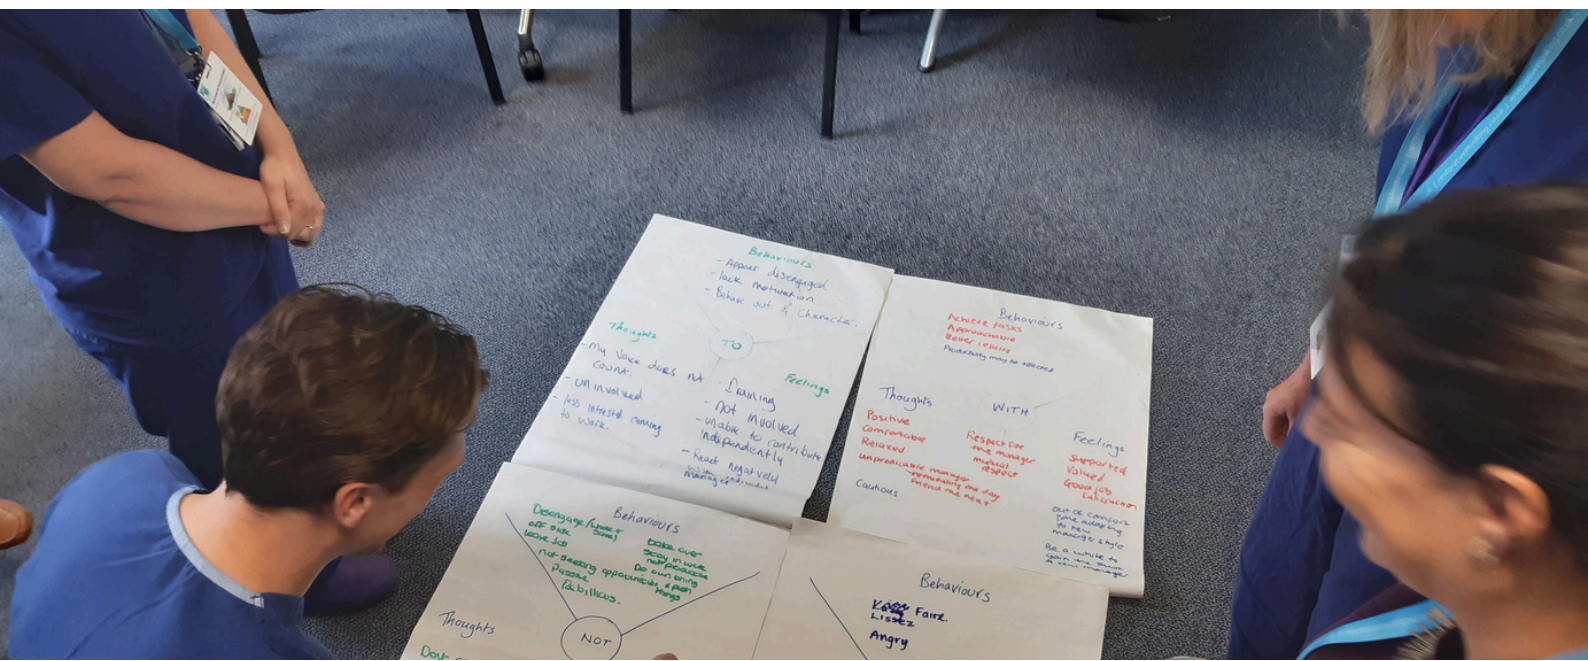 Behaviours
- Appear disengaged
- lack motivation
- Behave out of Character.
TO
Thoughts
- My Voice does not
count.
- uninvolved
- less intrested coming
to work.
Feelings
- Draining
- not involved
- unable to contribute
independently
- React negatively
Behaviours
Achieve tasks
Approachable
Better results
Productivity may be affected
WITH
Thoughts
Positive
Comfortable
Relaxed
unpredicable manager
Cautious
Respect for
the manager
mutual
respect
Feelings
Supported
Valued
Good job
Satisfaction
out of comfort
zone adapting
to new
manager style
Be a while to
gain the
a new manager
Behaviours
off sick
leave Job
not seeking opportunities
Passive
take over
stay in work
not productive
Do own thing
things
NOT
Thoughts
Behaviours
Faire
Lissez
Angry